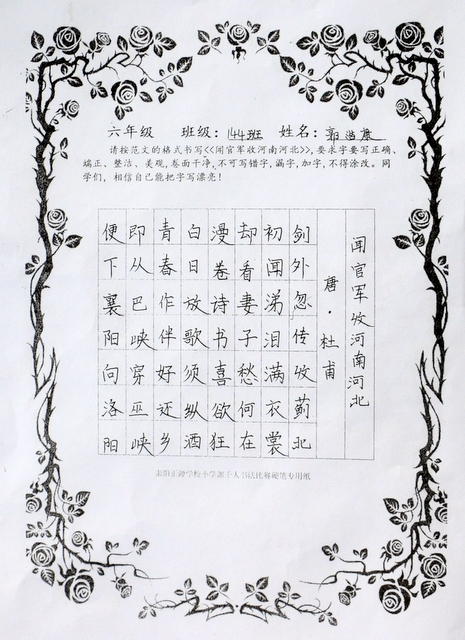 六年级 班级：144班 姓名：郭浩康
请按范文的格式书写<<闻官军收河南河北>>，要求字要写正确、
端正、整洁、美观，卷面干净，不可写错字，漏字，加字，不得涂改。同
学们，相信自己能把字写漂亮！
闻官军收河南河北
唐·杜甫
剑外忽传收蓟北
初闻涕泪满衣裳
却看妻子愁何在
漫卷诗书喜欲狂
白日放歌须纵酒
青春作伴好还乡
即从巴峡穿巫峡
便下襄阳向洛阳